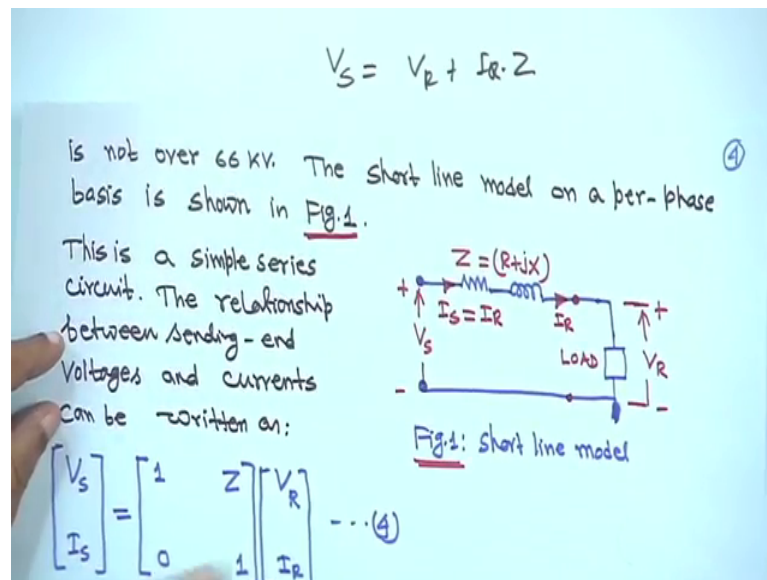 V_S = V_R + I_R.Z
is not over 66 KV. The short line model on a per-phase
④
basis is shown in Fig.1.
This is a simple series
circuit. The relationship
between sending-end
voltages and currents
can be written as:
Z = (R+jX)
+
I_S = I_R
I_R
+
V_S
LOAD
V_R
-
-
Fig.1: short line model
[V_S] = [1 Z] [V_R] ---(4)
[I_S] [0 1] [I_R]